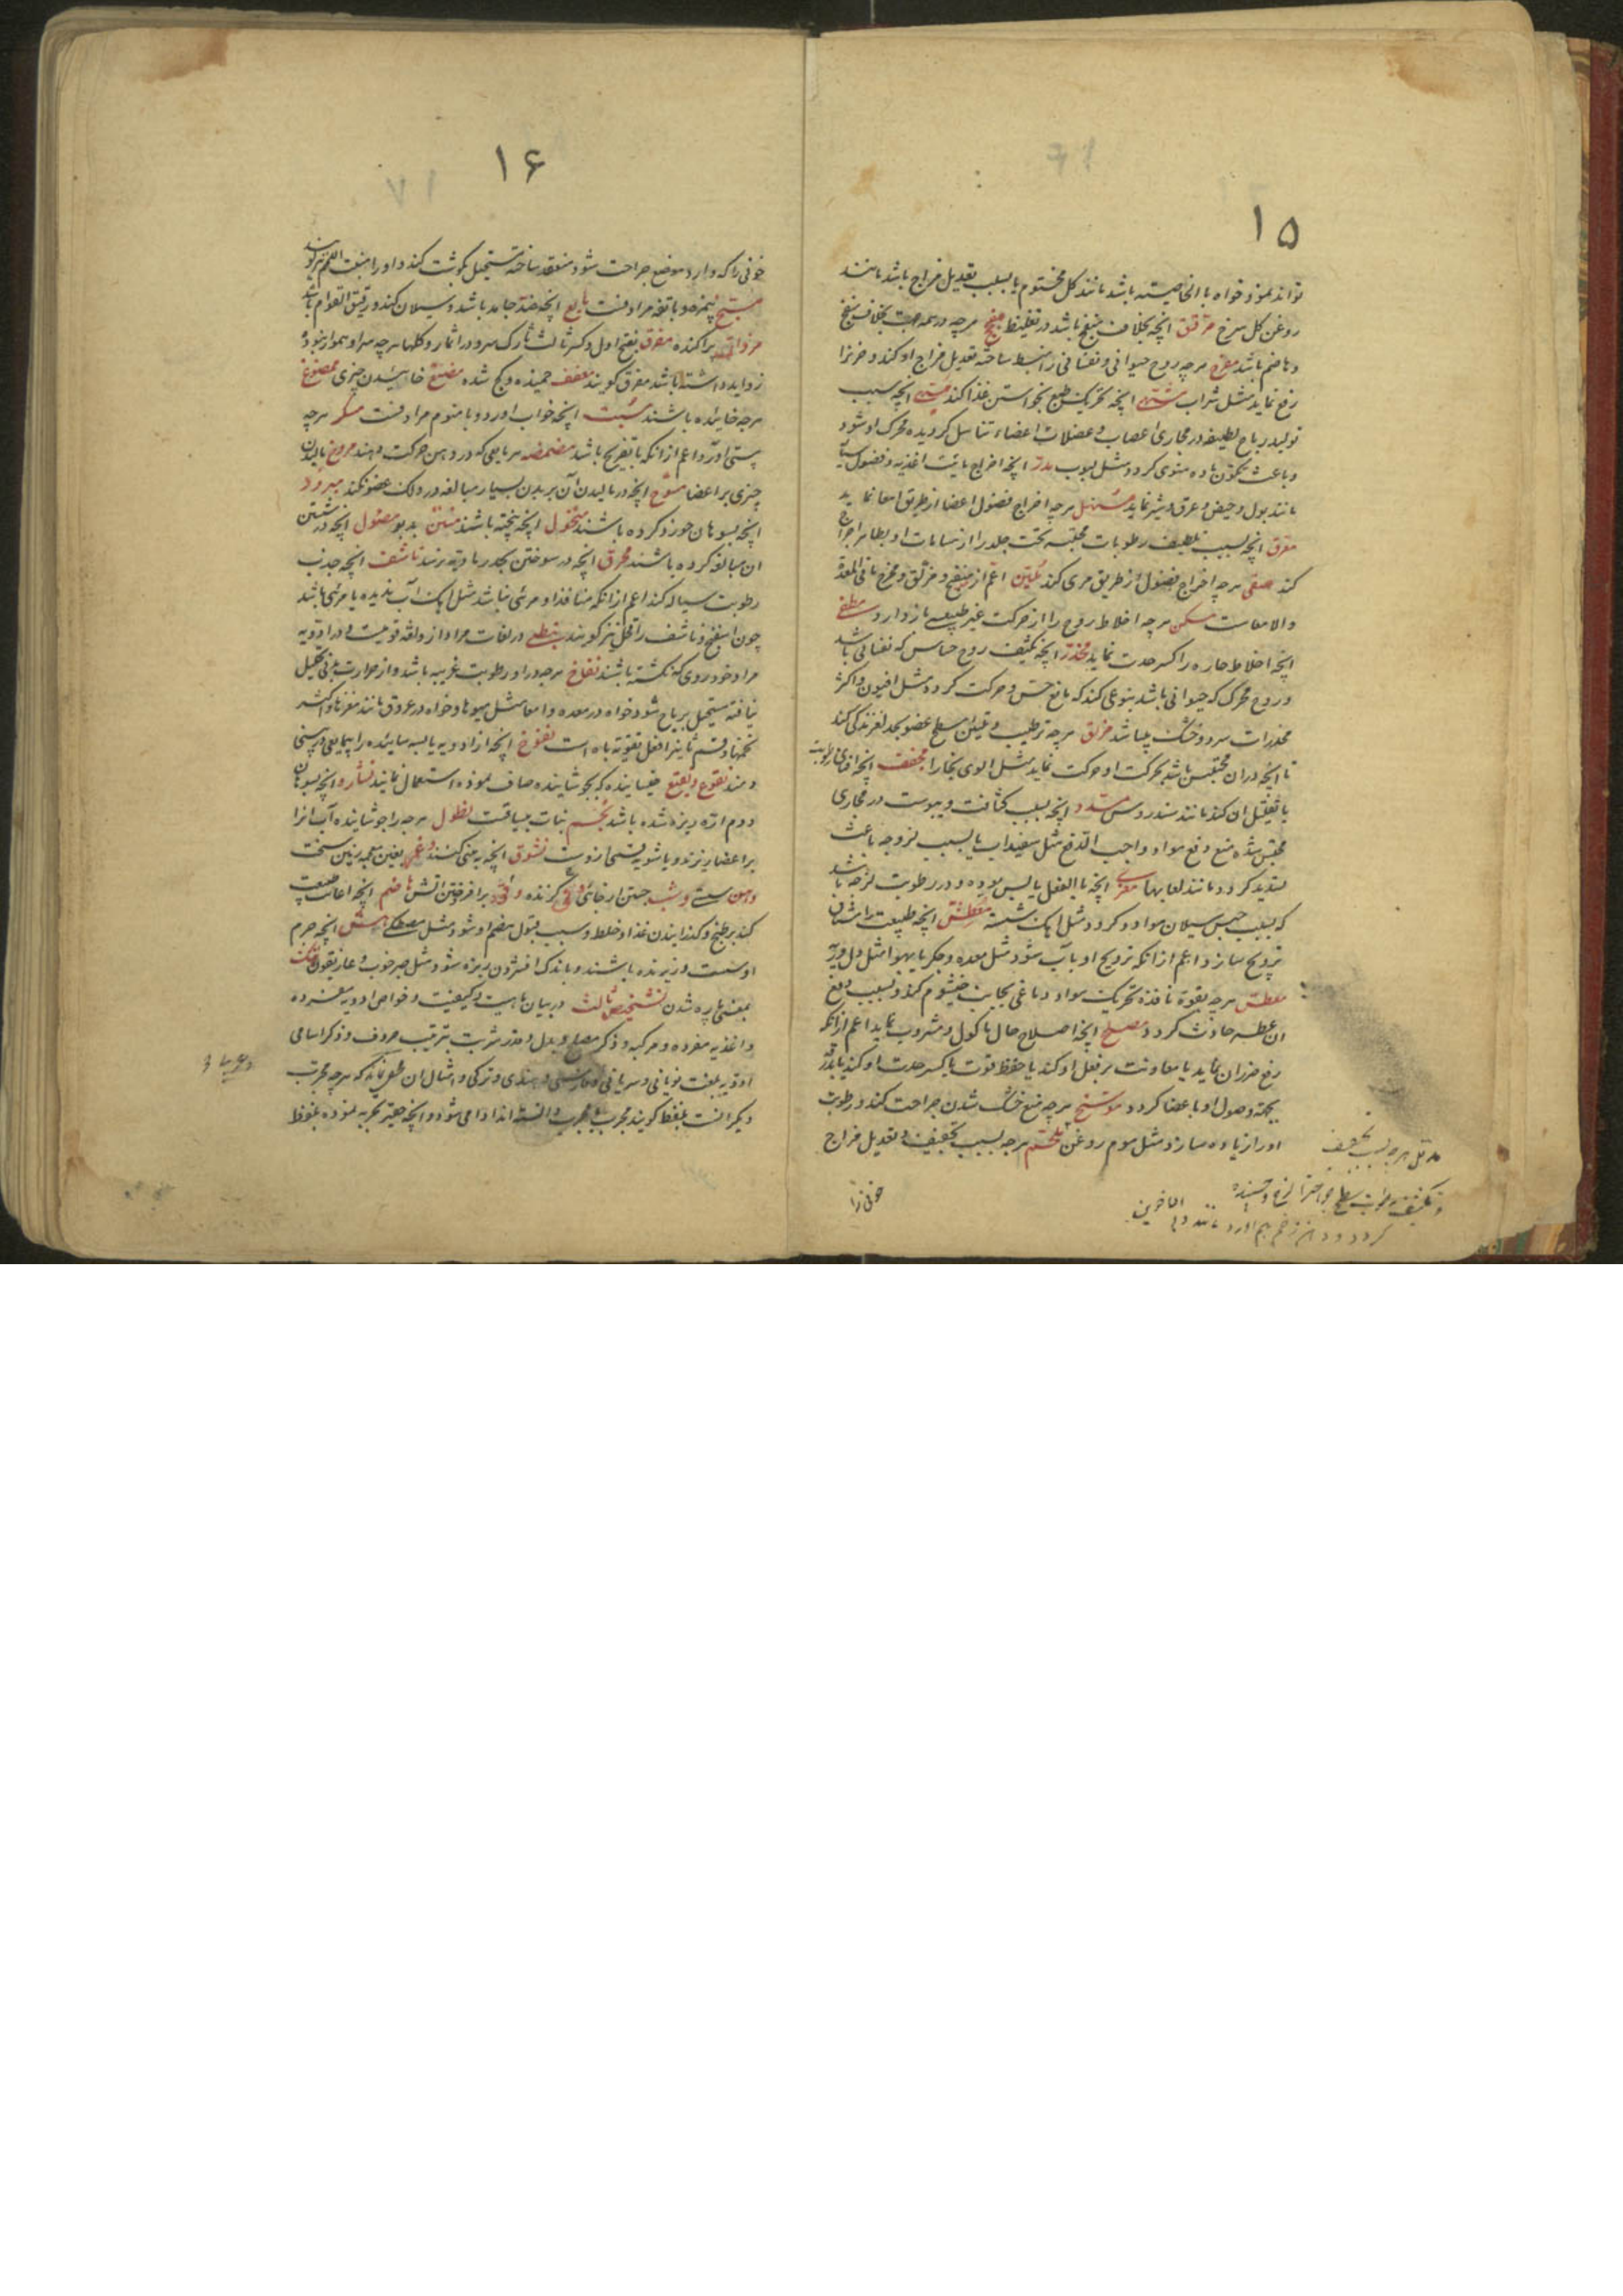 ۱۵
تواند نمود خواه با الخاصیته باشد مانند کل مختوم یا بسبب تعدیل مزاج باشد مانند
روغن کل سرخ مرقق انچه بخلاف منبع باشد در تغلیظ مفجج هرچه در همه جهت بخلاف منضج
و هاضم باشد مفرح هرچه روح حیوانی و نفسانی را منبسط ساخته تعدیل مزاج او کند و حزن را
رفع نماید مثل شراب مشتهی انچه تحریک طبع بخواستن غذا کند مبهی انچه سبب
تولید ریاح لطیفه در مجاری اعصاب و عضلات اعضاء تناسل کردیده محرک او شود
و باعث تکون ماده منوی کردد مثل لبوب مدر انچه اخراج مائیت اغذیه و فضول
مانند بول و حیض و عرق و شیر نماید مسهل هرچه اخراج فضول اعضا از طریق امعا نماید
معرق انچه بسبب تلطیف رطوبات محتبسه تحت جلد را از مسامات او بظاهر اخراج
کند مقی هرچه اخراج فضول از طریق مری کند ملین اعم از منضج و مزلق و مخرج ما فی المعدة
والامعاست مسکن هرچه اخلاط و روح را از حرکت غیر طبیعی باز دارد مطفی
انچه اخلاط حاره را کسر حدت نماید مخدر انچه تکثیف روح حساس که نفسانی باشد
و روح محرک که حیوانی باشد بنوعی کند که مانع حس و حرکت کردد مثل افیون و اکثر
مخدرات سرد و خشک میباشد مزلق هرچه ترطیب و تلیین سطح عضو بحد لغزندگی کند
تا انچه در ان محتبس باشد بحرکت او حرکت نماید مثل الوی بخارا مجفف انچه افنای رطوبت
یا تقلیل ان کند مانند سندروس مسدد انچه بسبب کثافت و یبوست در مجاری
محتبس شده منع دفع مواد واجب الدفع مثل سفیداب یا بسبب لزوجه باعث
تسدید کردد مانند لعابها مغری انچه با الفعل یابس بوده و در رطوبت لزجه باشد
که بسبب حبس سیلان مواد کردد مثل اهک شسته معطش انچه طبیعت را مشتاق
ترویح سازد اعم از انکه ترویح او بآب شود مثل معده و جکر یا بهوا مثل دل و ریه
معطس هرچه بقوة نافذه تحریک مواد دماغی بجانب خیشوم کند و بسبب دفع
ان عطسه حادث کردد مصلح انچه اصلاح حال ماکول و مشروب نماید اعم از انکه
رفع ضرر ان نماید یا معاونت بر فعل او کند یا حفظ قوت یا کسر حدت او کند یا بدرقه
بجهة وصول او باعضا کردد موسخ هرچه منع خشک شدن جراحت کند و رطوبت
او را زیاده سازد مثل موم روغن ملحم هرجه بسبب تجفیف و تعدیل مزاج
خونی را
مدمل هرچه بسبب تجفیف
و تکثیف رطوبات سطح جراحت را لزج و چسبنده
کردد و دهن زخم بهم اورد مانند دم الاخوین
۱۶
خونی را که وارد موضع جراحت شود منعقد ساخته مستحیل بکوشت کند و او را منبت اللحم نیز کویند
انچه جامد باشد و سیلان کند و رقیق القوام باشد
پراکنده مفرق بفتح اول و کسر ثالث تارک سر و در اثمار و کلها هرچه سر او هموار نبوده
زواید داشته باشد مفرق کویند معقف خمیده و کج شده مضغ خائیدن چیزی ممضوغ
هرچه خائیده باشند مسبت انچه خواب اورد و با منوم مرادفست مسکر هرچه
مستی آورد اعم از انکه با تفریح باشد مضمضه هر مایعی که در دهن حرکت دهند مروخ مالیدن
چیزی بر اعضا مسوح انچه در مالیدن آن بر بدن بسیار مبالغه در دلک عضو نکند مبرود
انچه بسوهان خورد کرده باشند انچه پخته باشند منتن بدبو مغسول انچه در شستن
ان مبالغه کرده باشند محرق انچه در سوختن بحد رمادیة نرسد ناشف انچه جذب
رطوبت سیاله کند اعم از انکه منافذ او مرئی نباشد مثل اهک آب ندیده یا مرئی باشد
چون اسفنج و ناشف را قحل نیز کویند نبطی در لغات مراد از و لغه قومیست و در ادویه
مراد خودروی که نکشته باشند نفاخ هرچه در او رطوبت غریبه باشد و از حرارت بدنی تحلیل
نیافته مستحیل بریاح شود خواه در معده و امعا مثل میوها و خواه در عروق مانند مغزها و اکثر
تخمها و قسم ثانی را فعل تقویة باه است نفوخ انچه از ادویه یابسه سائیده را
دمند نقوع و نقیع خیسانیده که بجوشانیده صاف نموده استعمال نمایند نشاره انچه بسوهان
و دم اره ریزه شده باشد نجم نبات بیساقست نطول هرچه را جوشانیده آب انرا
بر اعضا ریزند و پاشویه قسمی ازوست نشوق انچه به بینی کشند بغین معجمه زمین سخت
جستن از جائی کزنده برافروختن اتش هاضم انچه اعانت طبیعت
کند بر طبخ و کذرانیدن غذا و خلط و سبب قبول هضم او شود مثل مصطکی هش انچه جرم
او سست و زیزنده باشند و باندک افشردن ریزه شود مثل صبر خوب و غاریقون هتک
بمعنی پاره شدن تشخیص ثالث در بیان ماهیت و کیفیت و خواص ادویه مفرده
و اغذیه مفرده و مرکبه و ذکر مصلح و بدل و قدر شربت بترتیب حروف و ذکر اسامی
ادویه بلغت یونانی و سریانی و فارسی و هندی و ترکی و امثال ان مخفی نماند که هرچه مجرب
دیکرانست بلفظ کویند مجرب یا مجرب دانسته اند ادا می شود و انچه حقیر تجربه نموده بلفظ